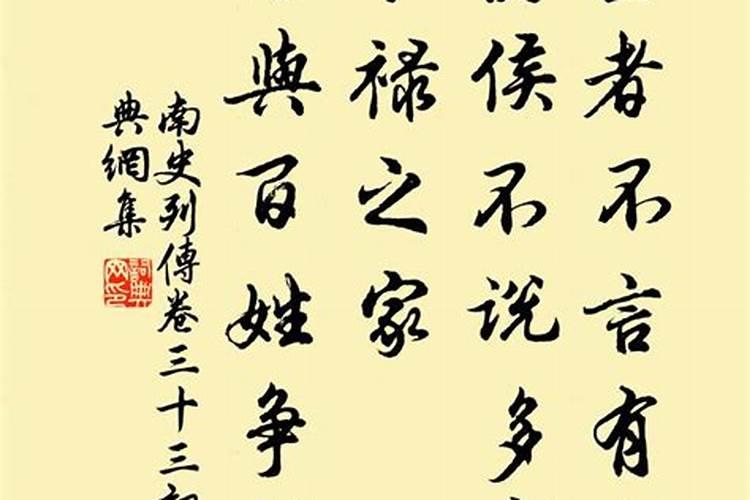 者不言有
侯不说多
禄之家
與百姓争
南史列傳卷三十三詞
典網集
詞典網印